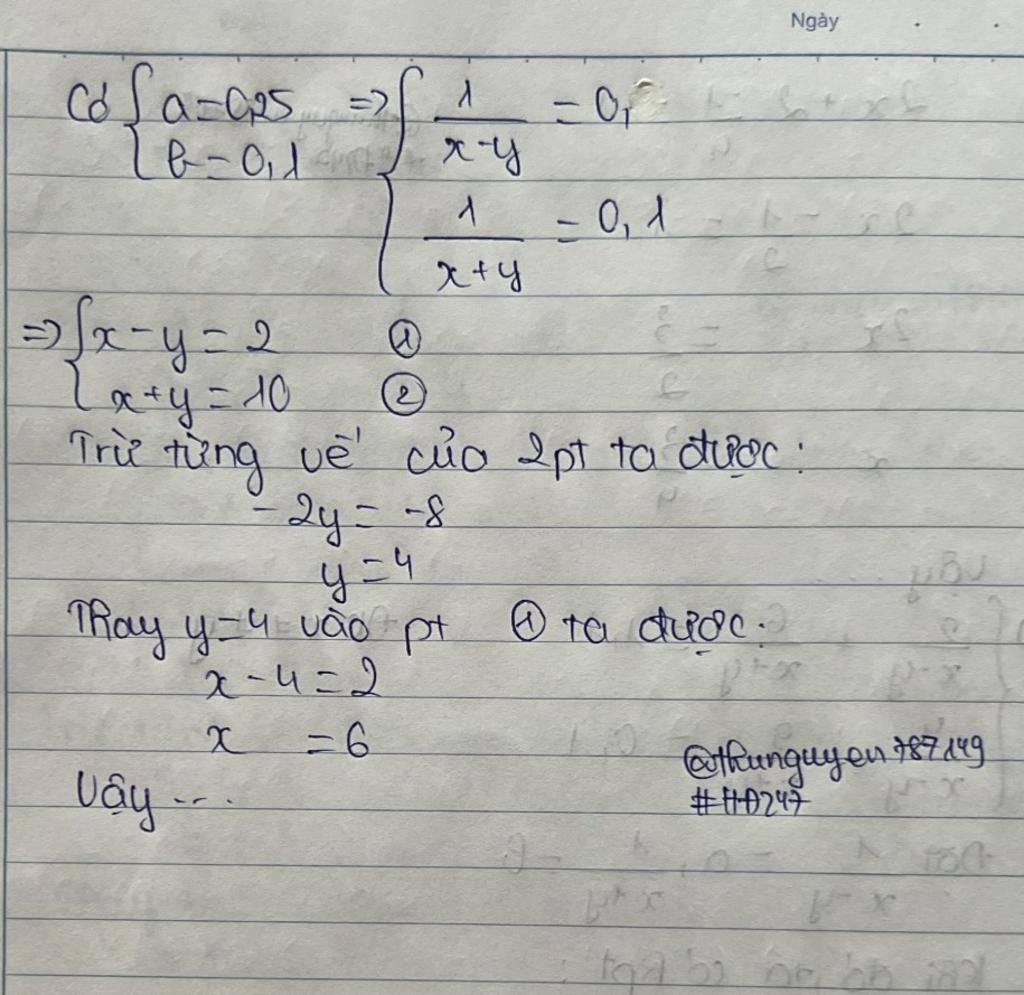 Ngày
Có { a = 0,25 => { 1/(x-y) = 0,
b = 0,1
1/(x+y) = 0,1
=> { x - y = 2 ①
x + y = 10 ②
Trừ từng vế của 2pt ta được:
- 2y = -8
y = 4
Thay y=4 vào pt ① ta được:
x - 4 = 2
x = 6
Vậy ...
@thunguyen787149
#HĐ247